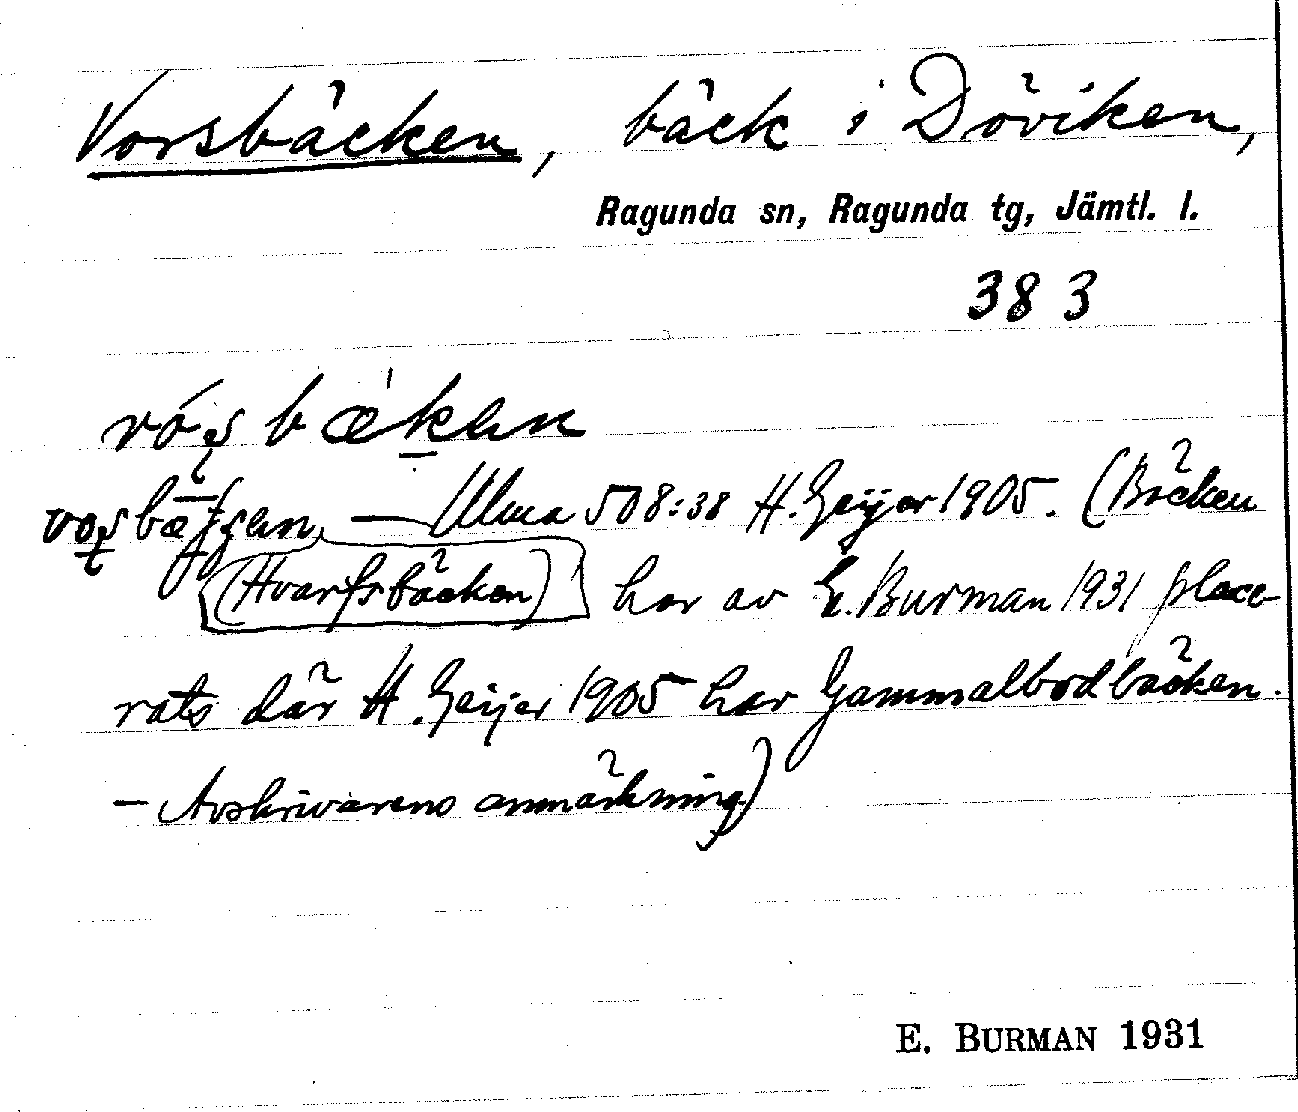 Vorsbäcken, bäck i Döviken,
Ragunda sn, Ragunda tg, Jämtl. l.
383
— Ulma 508:38 H. Geijer 1905. (Bäcken
(Hvarfsbäcken) har av E. Burman 1931 place-
rats där H. Geijer 1905 har Gammalbodbäcken.
— Avskrivarens anmärkning)
E. BURMAN 1931